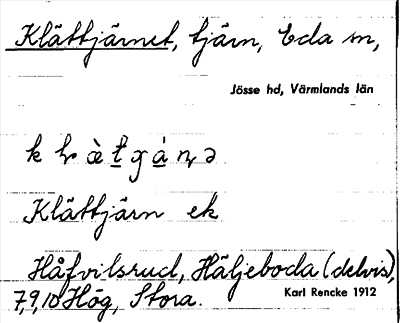 Klättjärnet, tjärn, Eda sn,
Jösse hd, Värmlands län
Klättjärn ek
Håfvilsrud, Häljeboda (delvis),
7,9,10 Hög, Stora.
Karl Rencke 1912